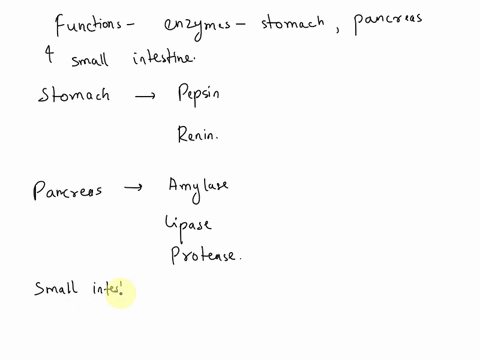 Functions - enzymes - stomach, pancreas
& small intestine.
Stomach → Pepsin
Renin.
Pancreas → Amylase
Lipase
Protease.
Small intes